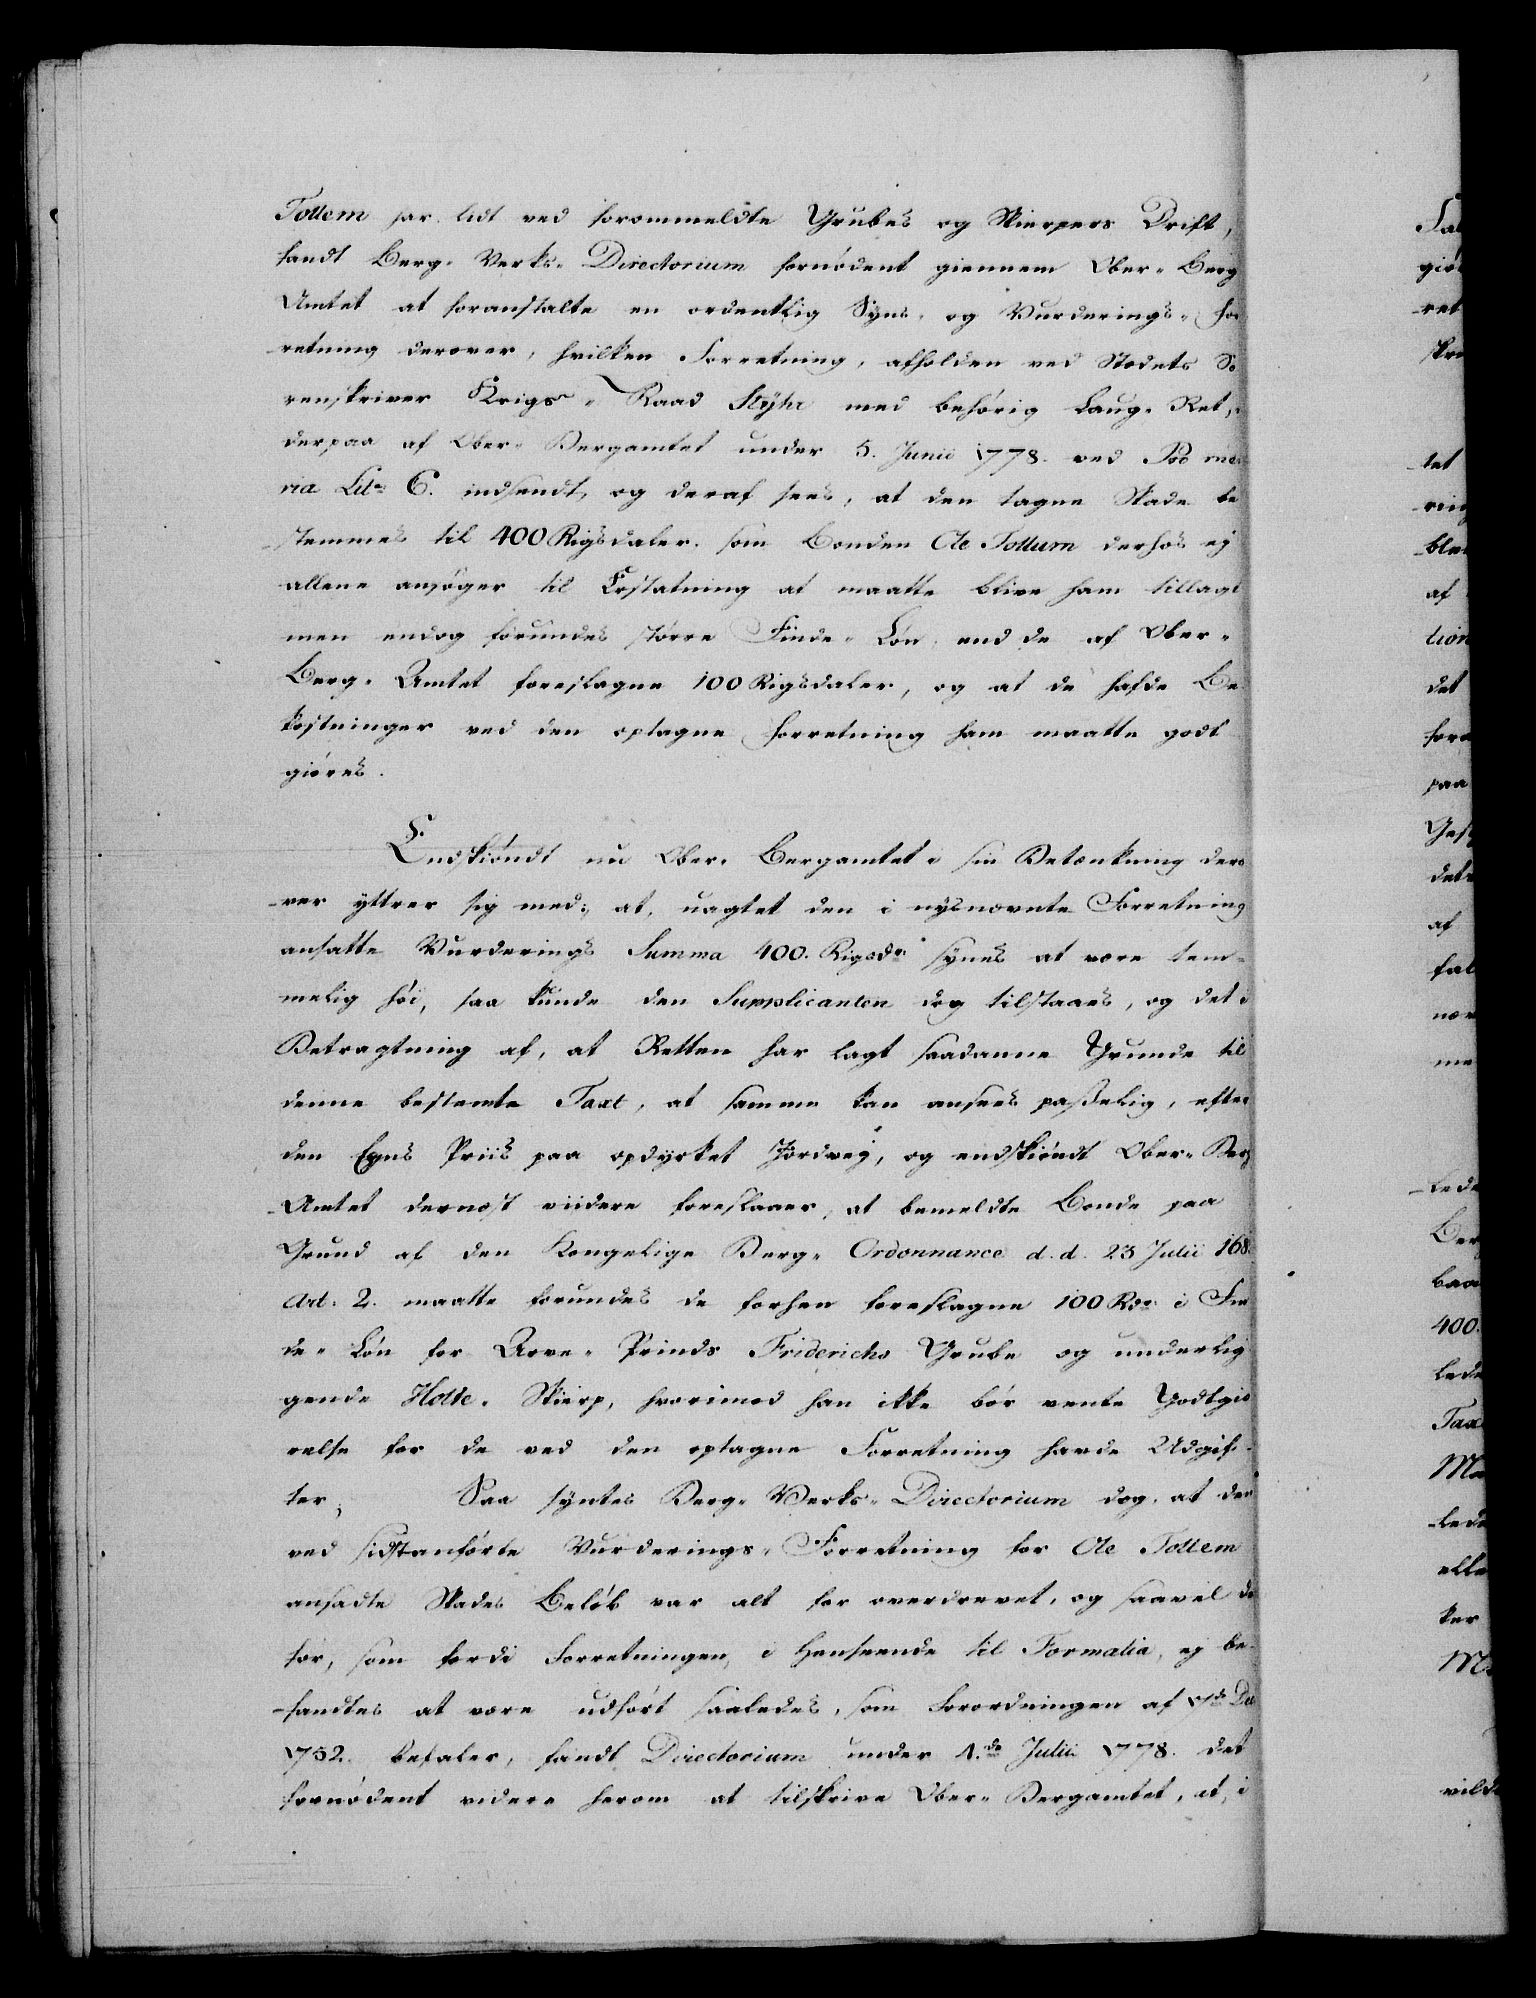 Tottem har lidt ved forommeldte Grubes og Skierpers Drift,
fandt Berg- Verks- Directorium fornödent giennem Ober- Berg
Amtet at foranstalte en ordentlig Syns- og Vurderings- For
retning derover, hvilken Forretning, afholden ved Stedets So
renskriver Krigs- Raad Stöhr med behörig Laug- Ret,
derpaa af Ober- Bergamtet under 5. Junii 1778. ved Pro me
ria Litr C. indsendt, og deraf sees, at den tagne Skade be
stemmes til 400 Rigsdaler. som Bonden Ole Tottum derhos ej
allene ansöger til Erstatning at maatte blive ham tillagt
men endog forundes större Finde- Lön, end de af Ober-
Berg- Amtet foreslagne 100 Rigsdaler, og at de hafde Be
kostninger ved den optagne Forretning ham maatte godt
giöres.
Endskiöndt nu Ober- Bergamtet i sin Betænkning dero
ver yttrer sig med: at, uagtet den i nysnævnte Forretning
ansatte Vurderings Summa 400. Rigsdr synes at være tem-
melig höi, saa kunde den Supplicanten dog tilstaaes, og det i
Betragtning af, at Retten har lagt saadanne Grunde til
denne bestemte Taxt, at samme kan ansees passelig, efter
den Egns Priis paa opdyrket Jordvej, og endskiöndt Ober- Berg
Amtet dernæst viidere foreslaaer, at bemeldte Bonde paa
Grund af den Kongelige Berg- Ordonnance d. d. 23 Julii 168
Art. 2. maatte forundes de forhen foreslagne 100 Rdr i Fin
de- Lön for Arve- Prinds Friderichs Grube og underlig
gende Holte- Skierp, hvorimod han ikke bör vente Godtgiö
relse for de ved den optagne Forretning havde Udgif-
ter; Saa syntes Berg- Verks- Directorium dog, at den
ved sidstanförte Vurderings- Forretning for Ole Tottem
ansadte Skades Belöb var alt for overdrevet, og saavel de
for, som fordi Forretningen, i Henseende til Formalia, ej be-
fandtes at være udfört saaledes, som Forordningen af 7de Dec
1752. befaler, fandt Directorium under 4.de Julii 1778. det
fornödent videre herom at tilskrive Ober- Bergamtet, at, i